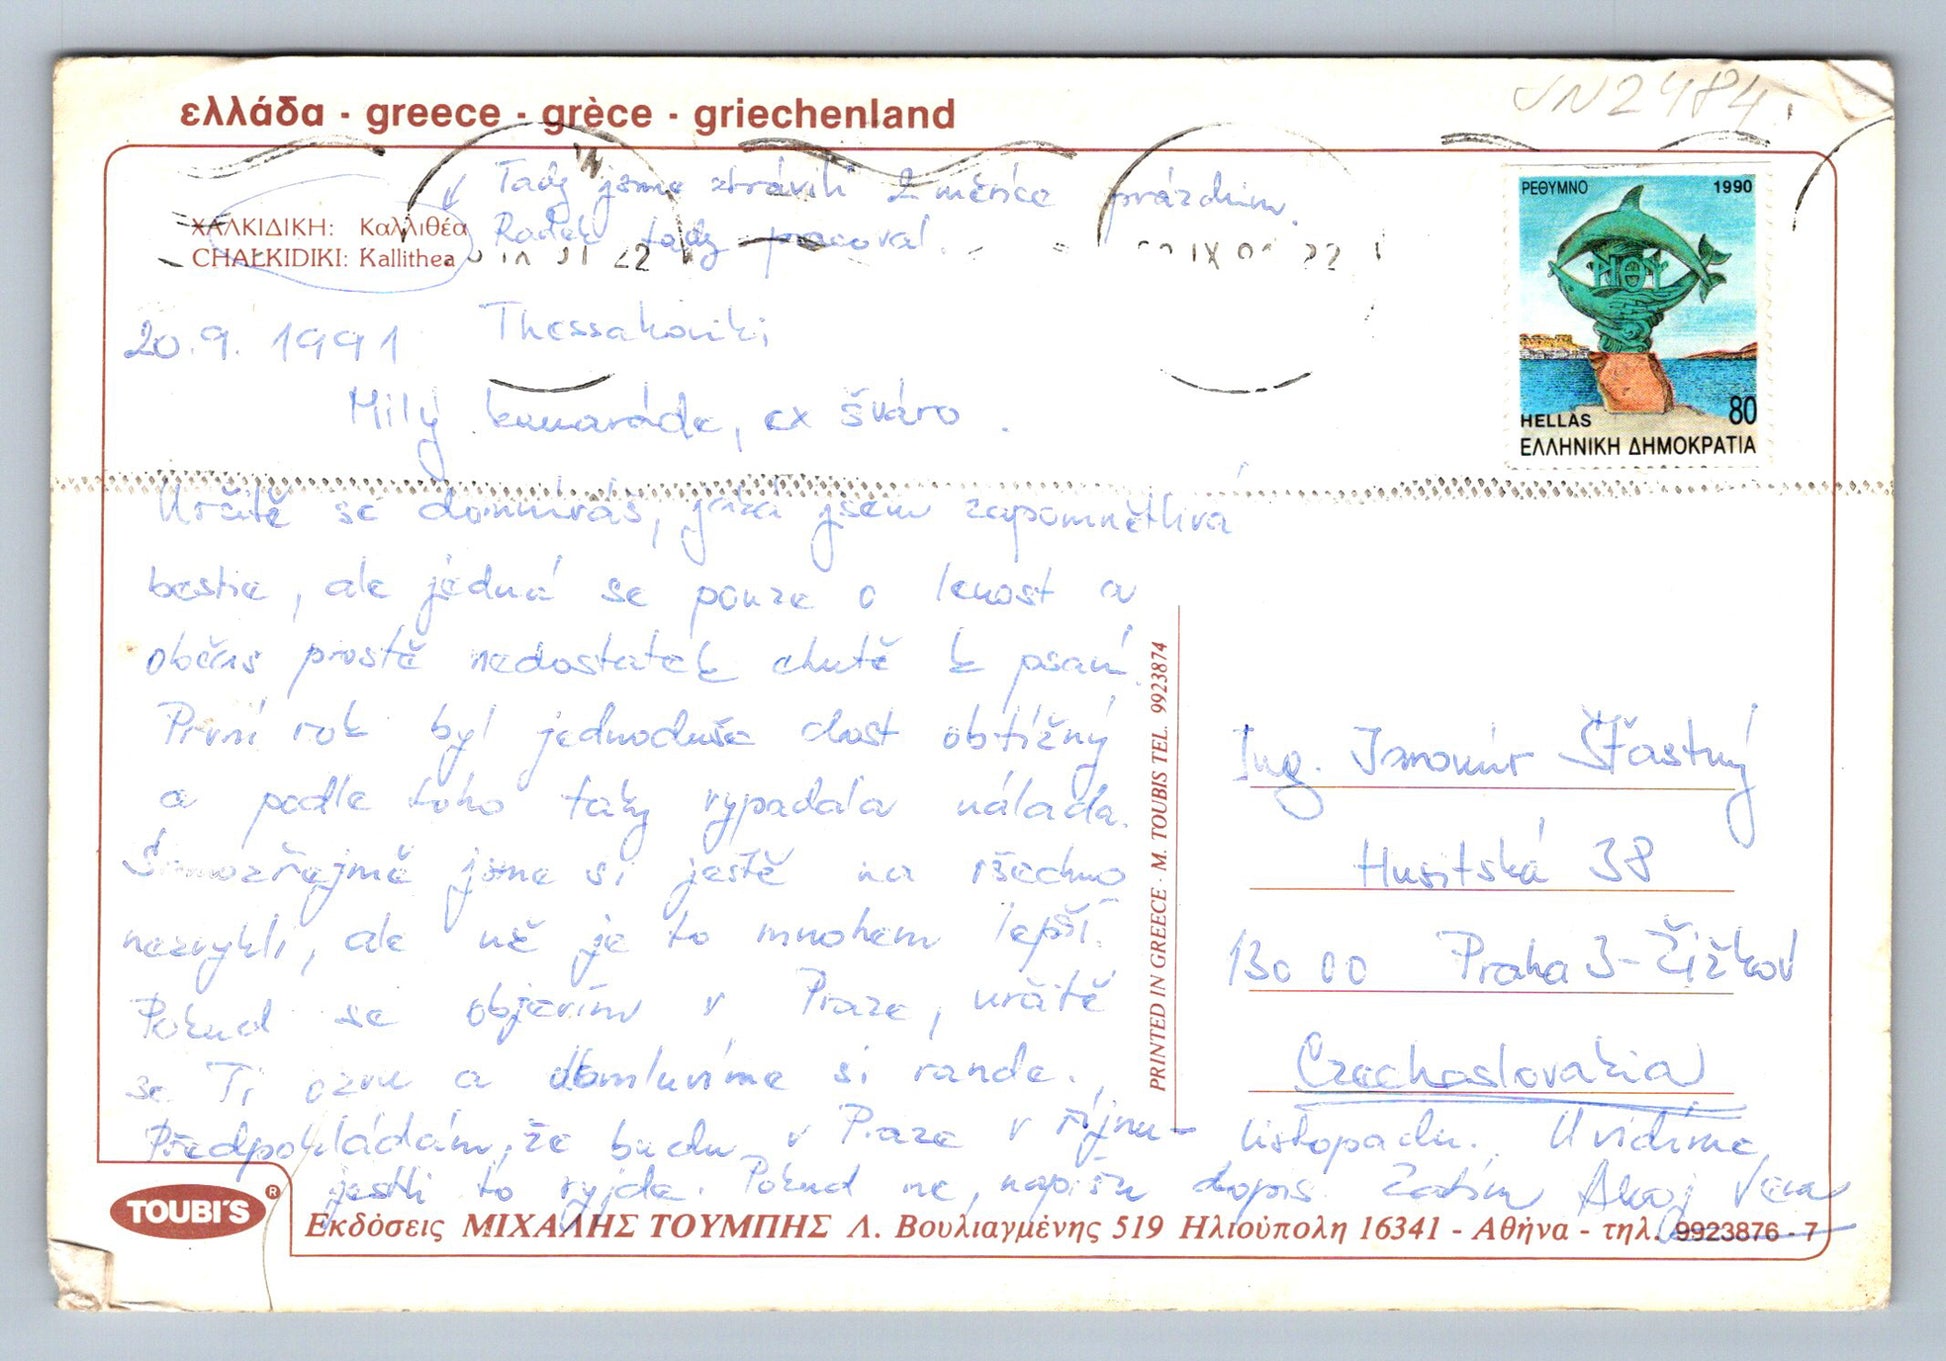 ελλάδα - greece - grèce - griechenland
JN2484
ΧΑΛΚΙΔΙΚΗ: Καλλιθέα
CHALKIDIKI: Kallithea
Tady jsme strávili 2 měsíce prázdnin.
Radek tady pracoval.
ΡΕΘΥΜΝΟ 1990
ΡΕΘΥ
HELLAS 80
ΕΛΛΗΝΙΚΗ ΔΗΜΟΚΡΑΤΙΑ
IX 91 22
IX 22
20.9. 1991 Thessaloniki
Milý kamaráde, ex šváro.
Určitě se domníváš, jaká jsem zapomnětlivá
bestie, ale jedná se pouze o lenost a
občas prostě nedostatek chutě k psaní.
První rok byl jednoduše dost obtížný
a podle toho taky vypadala nálada.
Samozřejmě jsme si ještě na všechno
nezvykli, ale už je to mnohem lepší.
Pokud se objevím v Praze, určitě
se Ti ozvu a domluvíme si rande.
Předpokládám, že budu v Praze v říjnu - listopadu. Uvidíme,
jestli to vyjde. Pokud ne, napíšu dopis. Zatím Ahoj
Ing. Jaromír Šťastný
Husitská 38
130 00 Praha 3 - Žižkov
Czechoslovakia
PRINTED IN GREECE - M. TOUBIS TEL. 9923874
TOUBI'S ®
Εκδόσεις ΜΙΧΑΛΗΣ ΤΟΥΜΠΗΣ Λ. Βουλιαγμένης 519 Ηλιούπολη 16341 - Αθήνα - τηλ. 9923876 - 7